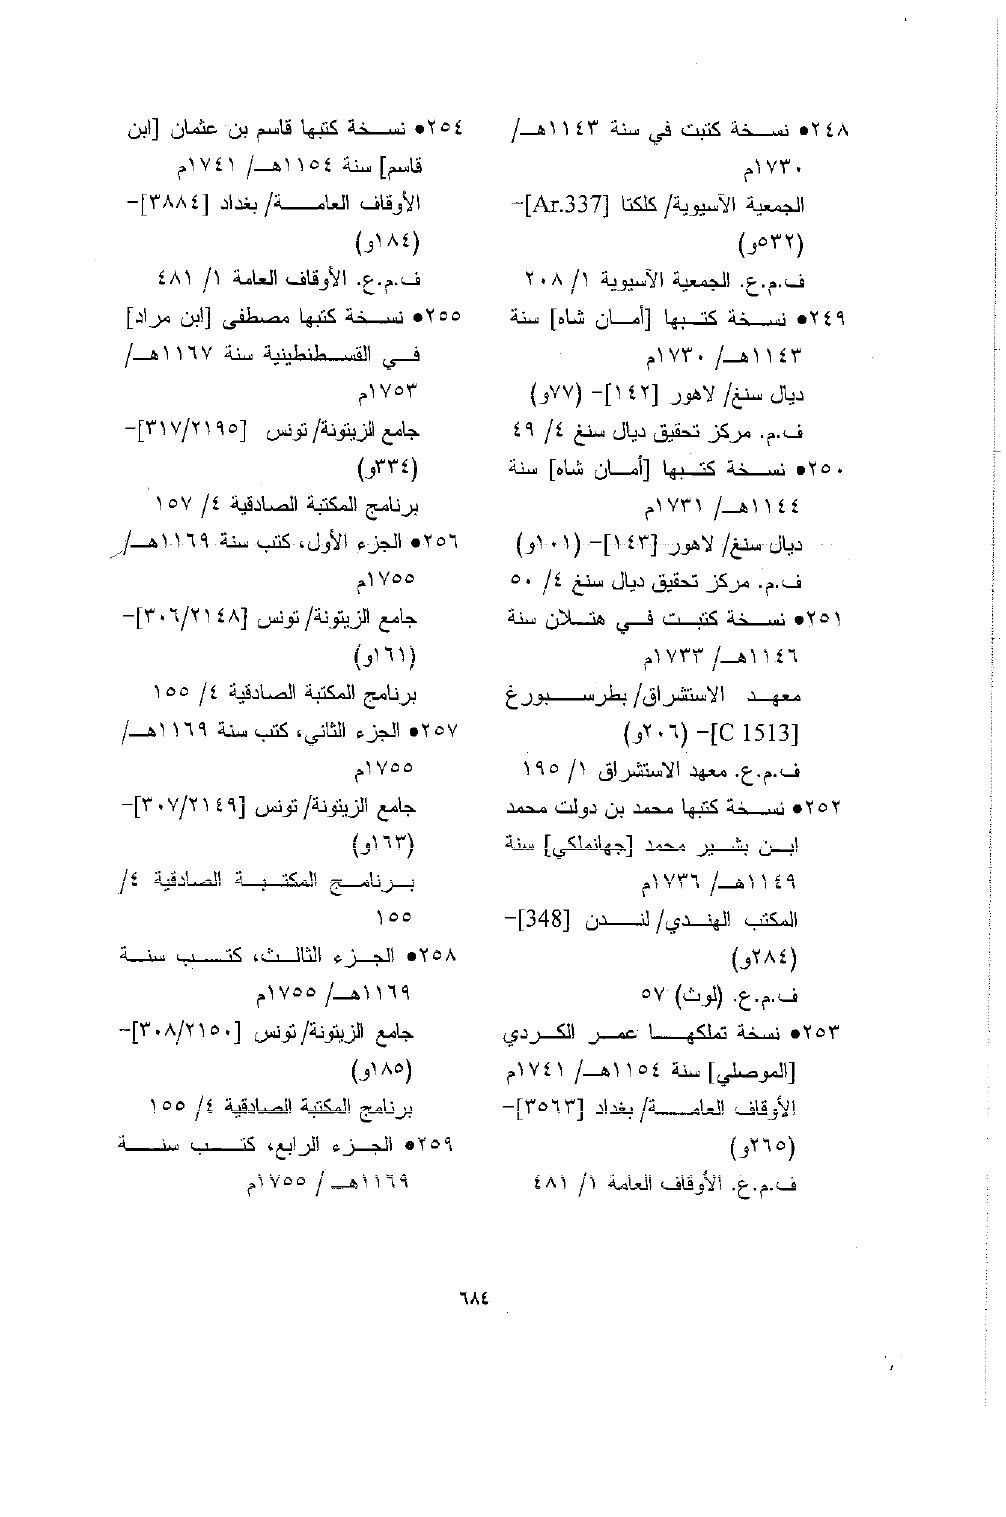 ٢٤٨• نسخة كتبت في سنة ١١٤٣هـ/
١٧٣٠م
الجمعية الآسيوية/ كلكتا [Ar.337]-
(٥٣٢و)
ف.م.ع. الجمعية الآسيوية ١/ ٢٠٨
٢٤٩• نسخة كتبها [أمان شاه] سنة
١١٤٣هـ/ ١٧٣٠م
ديال سنغ/ لاهور [١٤٢]- (٧٧و)
ف.م. مركز تحقيق ديال سنغ ٤/ ٤٩
٢٥٠• نسخة كتبها [أمان شاه] سنة
١١٤٤هـ/ ١٧٣١م
ديال سنغ/ لاهور [١٤٣]- (١٠١و)
ف.م. مركز تحقيق ديال سنغ ٤/ ٥٠
٢٥١• نسخة كتبت في هتلان سنة
١١٤٦هـ/ ١٧٣٣م
معهد الاستشراق/ بطرسبورغ
[C 1513]- (٢٠٦و)
ف.م.ع. معهد الاستشراق ١/ ١٩٥
٢٥٢• نسخة كتبها محمد بن دولت محمد
ابن بشير محمد [جهانملكي] سنة
١١٤٩هـ/ ١٧٣٦م
المكتب الهندي/ لندن [348]-
(٢٨٤و)
ف.م.ع. (لوث) ٥٧
٢٥٣• نسخة تملكها عمر الكردي
[الموصلي] سنة ١١٥٤هـ/ ١٧٤١م
الأوقاف العامة/ بغداد [٣٥٦٣]-
(٢٦٥و)
ف.م.ع. الأوقاف العامة ١/ ٤٨١
٢٥٤• نسخة كتبها قاسم بن عثمان [ابن
قاسم] سنة ١١٥٤هـ/ ١٧٤١م
الأوقاف العامة/ بغداد [٣٨٨٤]-
(١٨٤و)
ف.م.ع. الأوقاف العامة ١/ ٤٨١
٢٥٥• نسخة كتبها مصطفى [ابن مراد]
في القسطنطينية سنة ١١٦٧هـ/
١٧٥٣م
جامع الزيتونة/ تونس [٣١٧/٢١٩٥]-
(٣٣٤و)
برنامج المكتبة الصادقية ٤/ ١٥٧
٢٥٦• الجزء الأول، كتب سنة ١١٦٩هـ/
١٧٥٥م
جامع الزيتونة/ تونس [٣٠٦/٢١٤٨]-
(١٦١و)
برنامج المكتبة الصادقية ٤/ ١٥٥
٢٥٧• الجزء الثاني، كتب سنة ١١٦٩هـ/
١٧٥٥م
جامع الزيتونة/ تونس [٣٠٧/٢١٤٩]-
(١٦٣و)
برنامج المكتبة الصادقية ٤/
١٥٥
٢٥٨• الجزء الثالث، كتب سنة
١١٦٩هـ/ ١٧٥٥م
جامع الزيتونة/ تونس [٣٠٨/٢١٥٠]-
(١٨٥و)
برنامج المكتبة الصادقية ٤/ ١٥٥
٢٥٩• الجزء الرابع، كتب سنة
١١٦٩هـ/ ١٧٥٥م
٦٨٤